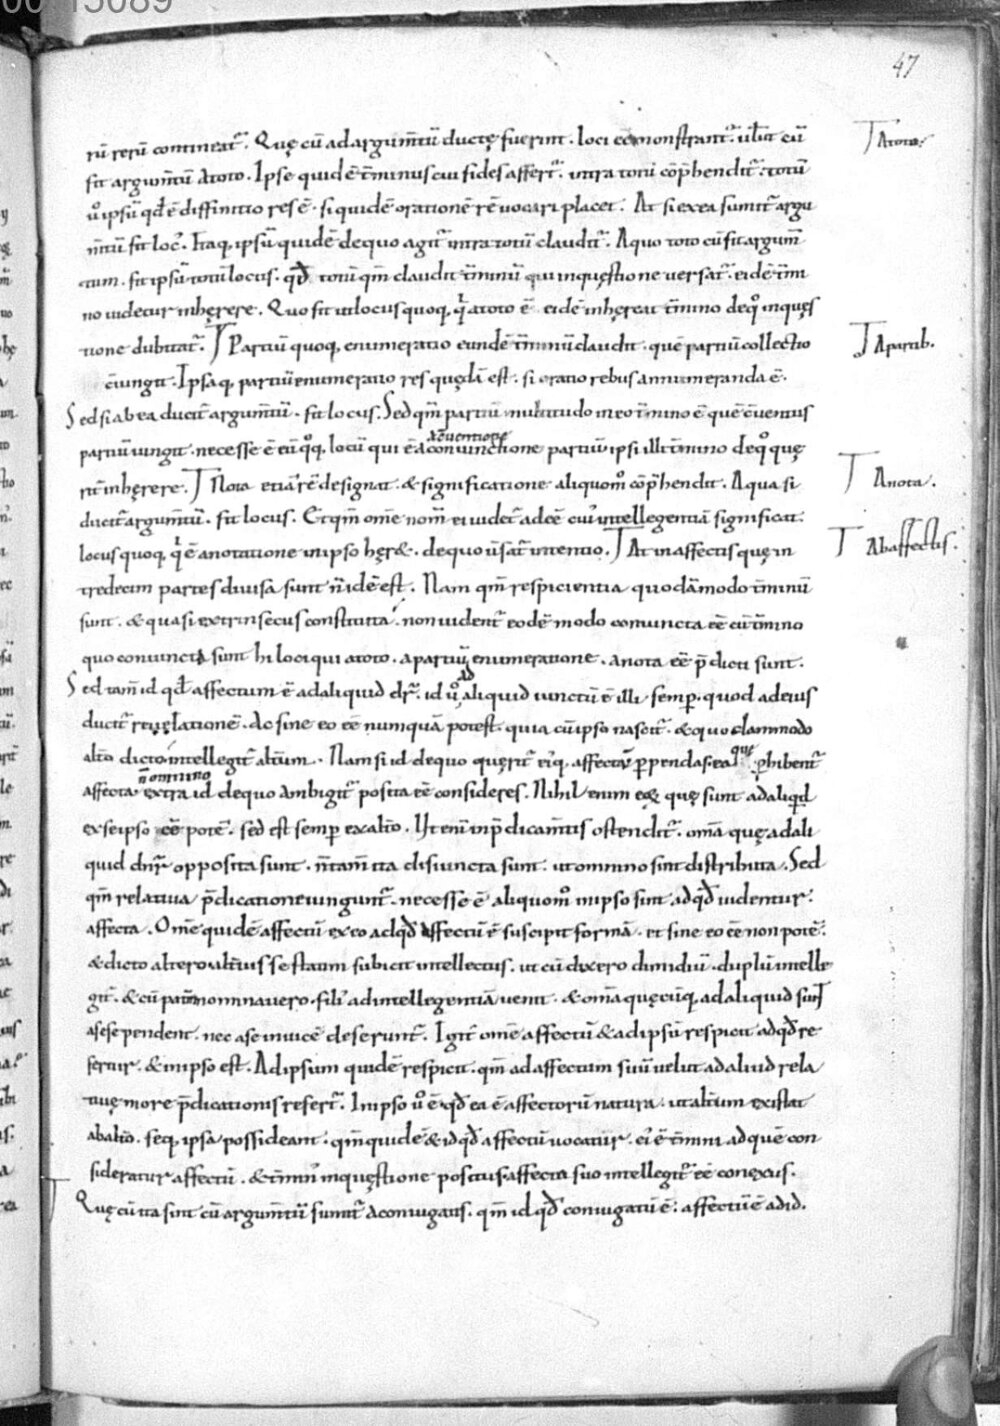 47
rū rerū contineat᷑. Quę cū ad argum̄tū ductę fuerint. loci cōmonstrant᷑. ul ut cū
A toto.
fit argum̄tū a toto. Ipse quidē t̄minus cui fides affert᷑. intra totū cōp̄hendit᷑. totū
u͛o ipsū qd̄ ē diffinitio res ē. si quidē orationē rē uocari placet. At si ex ea sumit᷑ argu
m̄tū fit loc᷒. Itaq; ipsū quidē de quo agit᷑ intra totū claudit᷑. A quo toto cū fit argum̄
tum. fit ipsū totū locus. qd̄ totū qm̄ claudit t̄minū qui in quęstione uersat᷑. eidē t̄mi
no uidetur inhęrere. Quo fit ut locus quoq; qͥ a toto ē eidē inhęreat t̄mino de qͦ in quęs
tione dubitat᷑. Partiū quoq; enumeratio eundē t̄minū claudit. quē partiū collectio
A partib.
cōiungit. Ipsaq; partiū enumeratio res quędā est. si oratio rebus annumeranda ē.
Sed si ab ea ducit᷑ argum̄tū. fit locus. Sed qm̄ partiū multitudo in eo t̄mino ē quē cōuentus
partiū iungit. necesse ē eū qͦq; locū qui ē a coniunctione partiū ipsi illi t̄mino de qͦ quę
rit᷑ inhęrere. Nota etiā rē designat. & significatione aliquom͛o cōp̄hendit. A qua si
A nota.
ducit᷑ argum̄tū. fit locus. Et qm̄ om̄e nom̄ ei uidet᷑ adeē cui᷒ intellegentiā significat.
locus quoq; qͥ ē a notatione in ipso hęr&. de quo uersat᷑ intentio. At in affectis quę in
Ab affectis.
tredecim partes diuisa sunt n̄ idē est. Nam qm̄ respicientia quodāmodo t̄minū
sunt. & quasi extrinsecus constituta. non uident᷑ eodē modo coniuncta eē cū t̄mino
quo coniuncti sunt hi loci qui a toto. a partiū enumeratione. a nota eē p̄dicti sunt.
Sed tam̄ id qd̄ affectum ē ad aliquid dr̄. id u͛o ad aliquid iunctū ē illi semp. quod ad eius
ducit᷑ relationē. Ac sine eo eē numquā potest. quia cū ipso nascit᷑. & quodammodo
alt͛o dicto intellegit᷑ alt͛um. Nam si id de quo quęrit᷑ eiq; affecta ppendas. ea que phibent᷑
affecta n̄ omnino extra id de quo ambigit᷑ posita eē consideres. Nihil enim eoꝝ quę sunt ad aliqͥd
ex se ipso eē potē. sed est semp ex alt͛o. Ut eni in p̄dicam̄tis ostendit᷑. om̄a quę ad ali
quid dn̄r opposita sunt. n̄ tam̄ ita disiuncta sunt. ut omnino sint distributa. Sed
qm̄ relatiua p̄dicatione iungunt᷑. necesse ē aliquom͛o in ipso sint ad qd̄ uidentur
affecta. Om̄e quidē affectū ex eo ad qd̄ affectū ē suscipit formā. et sine eo eē non potē.
& dicto altero alt͛ius se statim subicit intellectus. ut cū dixero dimidiū. duplū intelle
git᷑. & cū patrē nominauero. fili᷒ ad intellegentiā uenit. & om̄a quęcūq; ad aliquid sunt
a se se pendent. nec a se inuicē deserunt᷑. Igit᷑ om̄e affectū & ad ipsū respicit ad qd̄ re
fertur. & in ipso est. Ad ipsum quidē respicit. qm̄ ad affectum suū uelut ad aliud rela
tiuę more p̄dicationis refert᷑. In ipso u͛o ē. qd̄ ea ē affectorū natura. ut alt͛um existat
ab alt͛o. seq; ipsa possideant. qm̄ quidē & id qd̄ affectū uocatur. ei᷒ ē t̄mini ad quē con
sideratur affectū. & t̄min᷒ in quęstione positus affecta suo intellegit᷑ eē conexus.
Quę cū ita sint cū argum̄tū sumit᷑ a coniugatis. qm̄ id qd̄ coniugatū ē. affectū ē ad id.